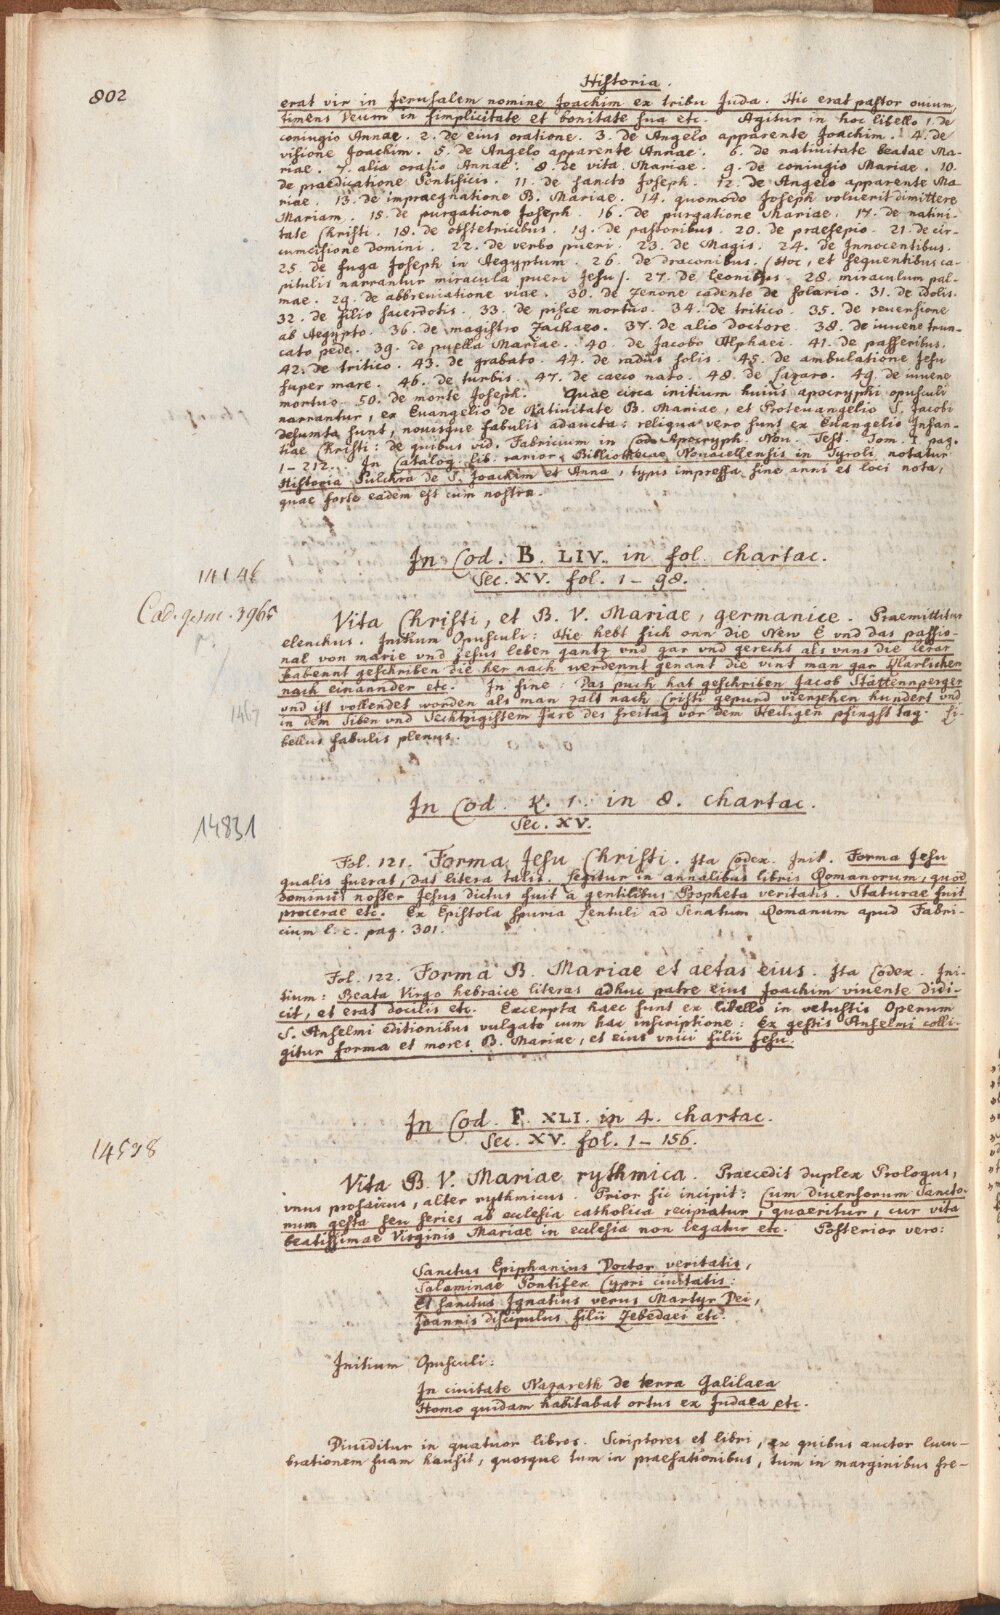 802
Historia.
erat vir in Jerusalem nomine Joachim ex tribu Juda. Hic erat pastor ouium,
timens Deum in simplicitate et bonitate sua etc. Agitur in hoc libello 1. de
coniugio Annae. 2. de eius oratione. 3. de Angelo apparente Joachim. 4. de
visione Joachim. 5. de Angelo apparente Annae. 6. de natiuitate beatae Ma-
riae. 7. alia oratio Annae. 8. de vita Mariae. 9. de coniugio Mariae. 10.
de praedicatione Pontificis. 11. de sancto Joseph. 12. de Angelo apparente Ma-
riae. 13. de impraegnatione B. Mariae. 14. quomodo Joseph voluerit dimittere
Mariam. 15. de purgatione Joseph. 16. de purgatione Mariae. 17. de natiui-
tate Christi. 18. de obstetricibus. 19. de pastoribus. 20. de praesepio. 21. de cir-
cumcisione Domini. 22. de verbo pueri. 23. de Magis. 24. de Innocentibus.
25. de fuga Joseph in Aegyptum. 26. de draconibus. (Hoc, et sequentibus ca-
pitulis narrantur miracula pueri Jesu). 27. de Leonibus. 28. miraculum pal-
mae. 29. de abbreuiatione viae. 30. de Zenone cadente de solario. 31. de idolis.
32. de filio sacerdotis. 33. de pisce mortuo. 34. de tritico. 35. de reuersione
ab Aegypto. 36. de magistro Zachaeo. 37. de alio doctore. 38. de iuuene trun-
cato pede. 39. de puella Mariae. 40. de Jacobo Alphaei. 41. de passeribus.
42. de tritico. 43. de grabato. 44. de radiis solis. 45. de ambulatione Jesu
super mare. 46. de turbis. 47. de caeco nato. 48. de Lazaro. 49. de iuuene
mortuo. 50. de morte Joseph. Quae circa initium huius apocryphi opusculi
narrantur, ex Euangelio de Natiuitate B. Mariae, et Proteuangelio S. Jacobi
desumta sunt, nouisque fabulis adaucta: reliqua vero sunt ex Euangelio Infan-
tiae Christi: de quibus vid. Fabricium in Cod. Apocryph. Nou. Test. Tom. I. pag.
1-212. In Catalog. lib. rarior. Bibliothecae Nouacellensis in Tyroli notatur
Historia Pulchra de S. Joachim et Anna, typis impressa sine anni et loci nota,
quae forte eadem est cum nostra.
In Cod. B. LIV. in fol. chartac.
Sec. XV. fol. 1-98.
14146
Cod. germ. 3965
Vita Christi, et B. V. Mariae, germanice. Praemittitur
elenchus. Initium Opusculi: Hie hebt sich onn die New E vnd das passio-
nal von marie vnd Jesus leben gantz vnd gar vnd gerecht als vnns die lerer
habennt geschriben die her nach werdennt genant die vint man gar Klarlichen
nach einannder etc. In fine: Das puch hat geschriben Jacob Stättennperger
vnd ist vollendet worden als man zalt nach Cristi gepurd vierzehen hundert vnd
in dem Siben vnd Sechtzigistem Jare des freitag vor dem Heiligen phingsttag. Li-
bellus fabulis plenus.
1467
In Cod. K. 1. in 8. chartac.
Sec. XV.
14831
Fol. 121. Forma Jesu Christi. Ita Codex. Init. Forma Jesu
qualis fuerat, dat litera talis. Legitur in annalibus libris Romanorum, quod
Dominus noster Jesus dictus fuit a gentilibus Propheta veritatis. Staturae fuit
procerae etc. Ex Epistola spuria Lentuli ad Senatum Romanum apud Fabri-
cium l. c. pag. 301.
Fol. 122. Forma B. Mariae et aetas eius. Ita Codex. Ini-
tium: Beata Virgo hebraice literas adhuc patre eius Joachim viuente didi-
cit, et erat docilis etc. Excerpta haec sunt ex libello in vetustis Operum
S. Anselmi editionibus vulgato cum hac inscriptione: Ex gestis Anselmi colli-
gitur forma et mores B. Mariae, et eius vnici filii Jesu.
In Cod. F. XLI. in 4. chartac.
Sec. XV. fol. 1-156.
14598
Vita B. V. Mariae rythmica. Praecedit duplex Prologus,
vnus prosaicus, alter rythmicus. Prior sic incipit: Cum diuersorum Sancto-
rum gesta seu series ab ecclesia catholica recipiatur, quaeritur, cur vita
beatissimae Virginis Mariae in ecclesia non legatur etc. Posterior vero:
Sanctus Epiphanius Doctor veritatis,
Salaminae Pontifex Cypri ciuitatis:
Et sanctus Ignatius verus Martyr Dei,
Joannis discipulus filii Zebedaei etc.
Initium Opusculi:
In ciuitate Nazareth de terra Galilaea
Homo quidam habitabat ortus ex Judaea etc.
Diuiditur in quatuor libros. Scriptores et libri, ex quibus auctor lucu-
brationem suam hausit, quosque tum in praefationibus, tum in marginibus fre-